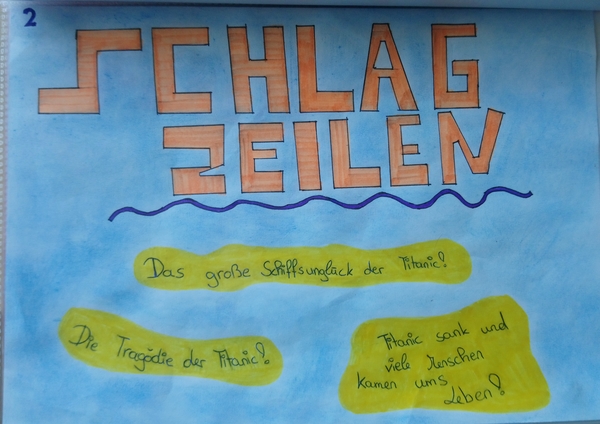 2
SCHLAG
ZEILEN
Das große Schiffsunglück der Titanic!
Die Tragödie der Titanic!
Titanic sank und
viele Menschen
kamen ums
Leben!